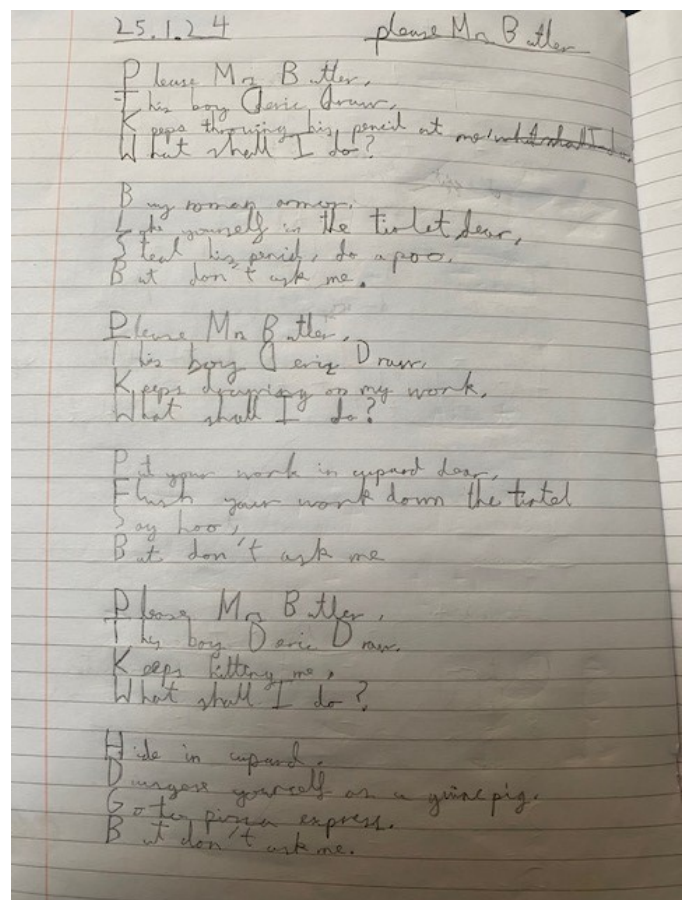 25.1.24 please Mrs Butler
Please Mrs Butler,
This boy Deric Draw,
Keeps throwing his pencil at me!
What shall I do?
Buy roman armor.
yourself in the tiolet dear,
Steal his pencil, do a poo.
But don't ask me.
Please Mrs Butler,
This boy Deric Draw,
Keeps drawing on my work,
What shall I do?
Put your work in cupard dear,
Flush your work down the tiotel
Say hoo,
But don't ask me
Please Mrs Butler,
This boy Deric Draw.
Keeps hitting me,
What shall I do?
Hide in cupard.
yourself as a guine pig.
Go to pizza express.
But don't ask me.